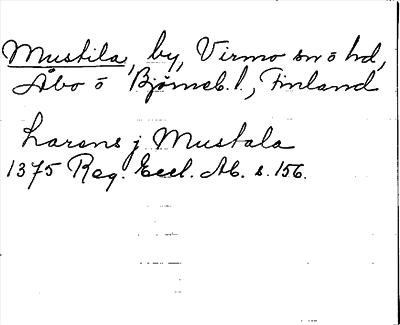 Mustila, by, Virmo sn o hd,
Åbo o Björneb. l., Finland
Larens j Mustala
1375 Reg. Eccl. Ab. s. 156.